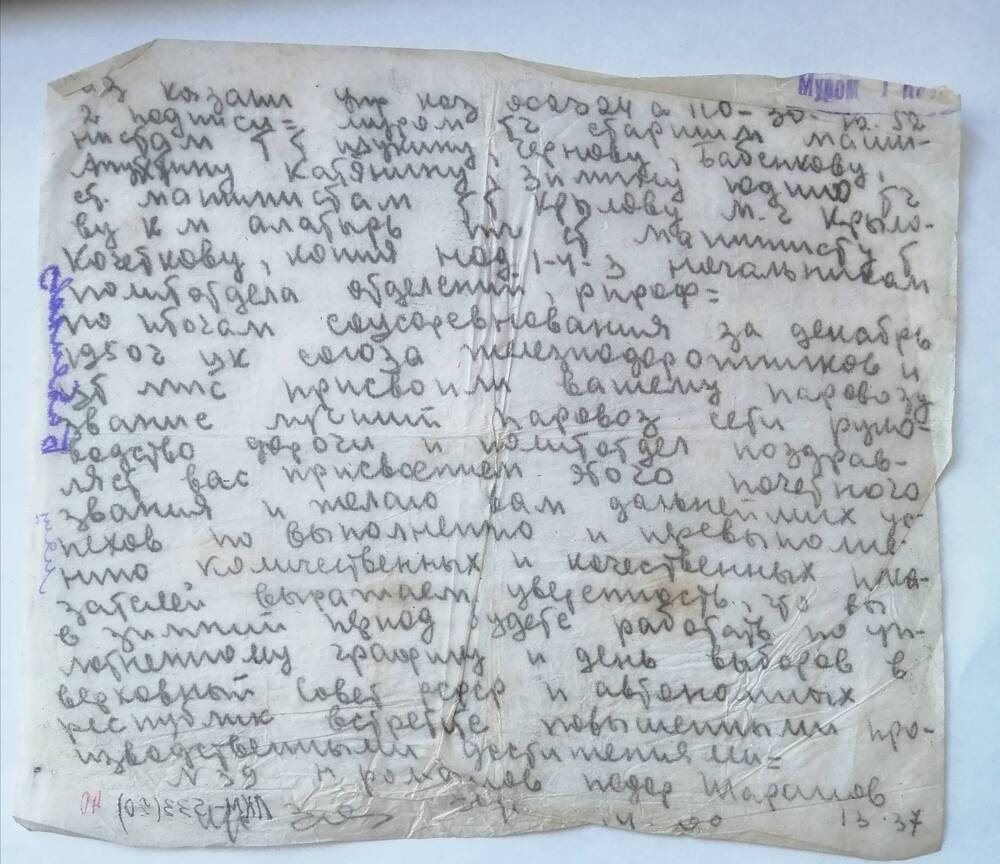 Муром 1
из казани упр каз 80324 а 110- 30- 12.52
2 подписи= муром тч старшим маши-
нистам тт щукину, чернову, бабенкову,
Катянину, зимину юдино тч
ст. машинистам тт крылову м.г крыло-
ву к м алатырь тч ст машинисту т
кочеткову, копия нод 1-4-3 начальникам
политотдела отделений, рпроф=
по итогам соцсоревнования за декабрь
1950г цк союза железнодорожников и
мпс присвоили вашему паровозу
звание лучший паровоз сети руко-
водство дороги и политотдел поздрав-
ляет вас присвоением этого почетного
звания и желаю вам дальнейших ус-
пехов по выполнению и перевыполне-
нию количественных и качественных пока-
зателей выражаем уверенность, что вы
в зимний период будете работать по уп-
лотненному графику и день выборов в
верховный совет рсфср и автономных
республик встретите повышенными про-
изводственными достижениями=
N 39 н романов подор Шаримов
14.00 13.37